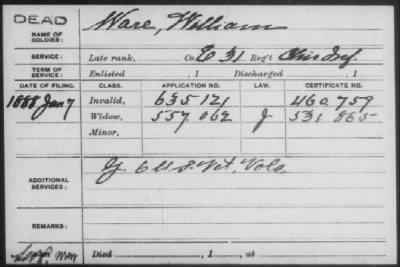 DEAD
NAME OF SOLDIER: Ware, William
SERVICE: Late rank, Co. E 31 Reg't Ohio Inf.
TERM OF SERVICE: Enlisted , 1 Discharged , 1
DATE OF FILING. CLASS. APPLICATION NO. LAW. CERTIFICATE NO.
1888 Jan 7 Invalid, 635 121 460.759
Widow, 557.062 J 531 865
Minor,
ADDITIONAL SERVICES: G. 6 U.S. Vet. Vols.
REMARKS:
Died , 1 , at